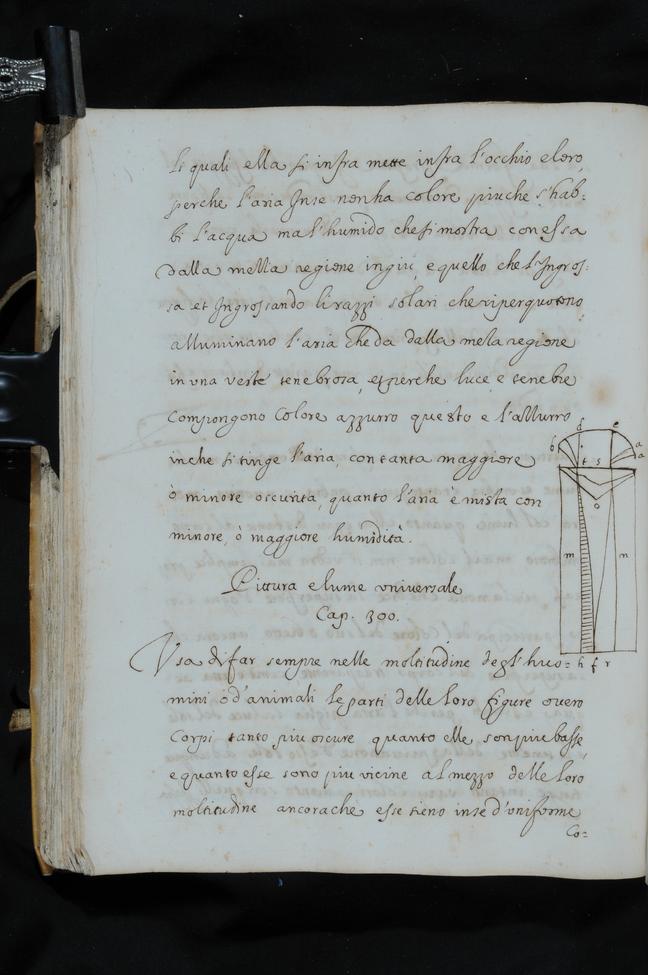 li quali ella si infra mette infra l'occhio e loro,
perche l'aria Inse non ha colore piu che s'hab:
bi l'acqua ma l'humido che si mostra con essa
dalla metta regione ingiu, e quello che l'Ingros:
sa et Ingrossando li razzi solari che riperquotono
alluminano l'aria che da dalla meta regione
in una veste tenebrosa, et perche luce e tenebre
compongono Colore azzurro questo e l'allurro
inche si tinge l'aria, con tanta maggiore
ò minore oscurita, quanto l'aria è mista con
minore, ò maggiore humidità.
Pittura e lume universale
Cap. 300.
Usa di far sempre nelle moltitudine degl'huo=
mini ò d'animali le parti delle loro figure overo
Corpi tanto piu oscure quanto elle son piu basse,
e quanto esse sono piu vicine al mezzo delle loro
moltitudine ancorache esse sieno inse d'uniforme
Co=
b d e a a
t s
o
m n
h f r